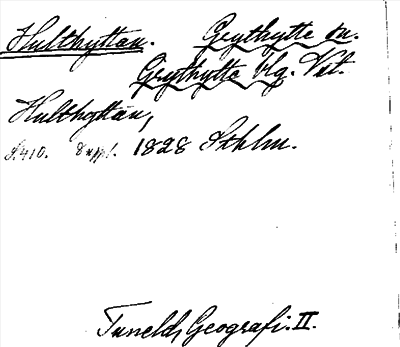 Hulthyttan. Grythytte sn.
Grythytte blg. Vstl.
Hulthyttan,
S.410. Suppl. 1828 Sthlm.
Tuneld, Geografi. II.